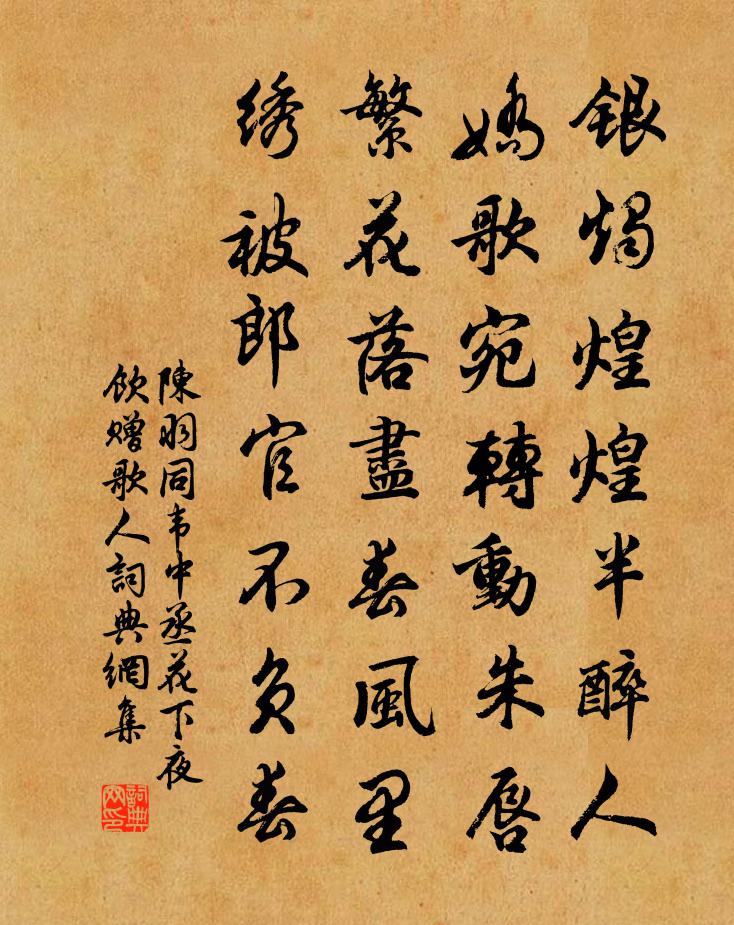 銀燭煌煌半醉人
嬌歌宛轉動朱唇
繁花落盡春風里
绣被郎官不負春
陳羽同韦中丞花下夜
飲贈歌人詞典網集
詞典网印